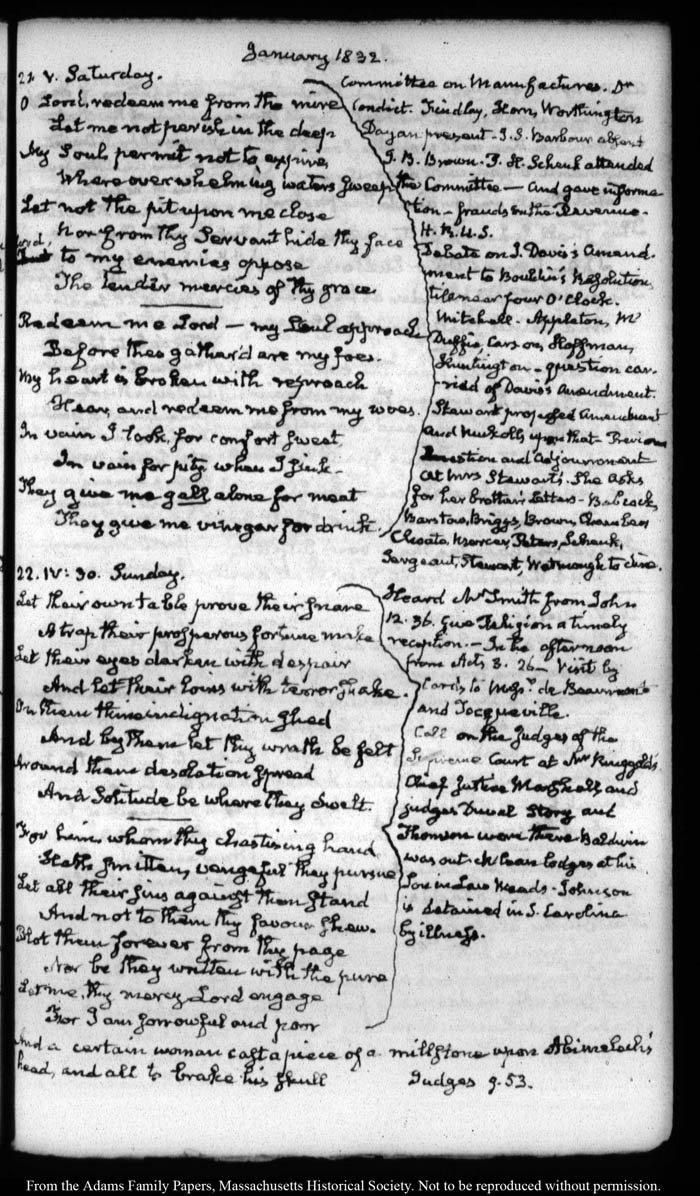 January 1832.
21. V. Saturday.
O Lord, redeem me from the mire
Let me not perish in the deep
My Soul permit not to expire,
Where overwhelming waters sweep
Let not the pit upon me close
Lord, Nor from thy Servant hide thy face
to my enemies oppose
The tender mercies of thy grace
Redeem me Lord — my Soul approach
Before thee gather'd are my foes.
My heart is broken with reproach
Hear, and redeem me from my woes.
In vain I look, for comfort sweet
In vain for pity when I sink.
They give me gall alone for meat
They give me vinegar for drink.
Committee on Manufactures. Dr
Condict. Findlay, Horn, Worthington
Dayan present - J. S. Barbour absent
J. B. Brown. J. H. Schenk attended
the Committee — and gave informa
tion - frauds on the Revenue.
H. R. U. S.
Debate on J. Davis's Amend.
ment to Bouldin's Resolution,
till near four O'Clock.
Mitchell. Appleton, Mc
Duffie, Carson, Hoffman,
Huntington - question car-
ried of Davis's Amendment.
Stewart proposed Amendment
and Nuckolls upon that - Previous
Question and Adjournment
At Mrs Stewart's. She asks
for her brother's Letters - Babcock,
Barstow, Briggs, Brown,
Choate, Kerr, Peters, Schenk,
Sergeant, Stewart Watmough to dine.
22. IV: 30. Sunday.
Let their own table prove their snare
A trap their prosperous fortune make
Let their eyes darken with despair
And let their loins with terror shake.
On them thine indignation shed
And by them let thy wrath be felt
Around them desolation spread
And Solitude be where they dwelt.
For him whom thy chastising hand
Hath smitten, vengeful they pursue
Let all their sins against them stand
And not to them thy favour shew.
Blot them forever from thy page
Nor be they written with the pure
Let me, thy mercy Lord engage
For I am sorrowful and poor
Heard Mr Smith from John
12. 36. Give Religion a timely
reception. — In the afternoon
from Acts 8. 26 — Visit by
Cards to Messrs. de Beaumont
and Tocqueville.
Call on the Judges of the
Supreme Court at Mr Ringgold's
Chief Justice Marshall and
judges Duval Story and
Thomson were there Baldwin
was out. McLean lodges at his
Son in Law Meads. Johnson
is detained in S. Carolina
by illness.
And a certain woman cast a piece of a millstone upon Abimelech's
head, and all to brake his skull
Judges 9. 53.
From the Adams Family Papers, Massachusetts Historical Society. Not to be reproduced without permission.